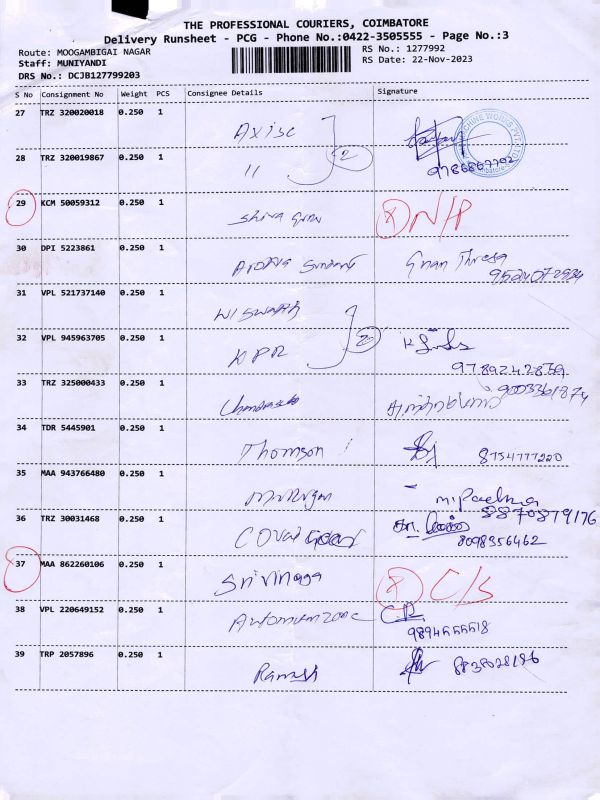 THE PROFESSIONAL COURIERS, COIMBATORE
Delivery Runsheet - PCG - Phone No.:0422-3505555 - Page No.:3
Route: MOOGAMBIGAI NAGAR
Staff: MUNIYANDI
DRS No.: DCJB127799203
RS No.: 1277992
RS Date: 22-Nov-2023
S No Consignment No Weight PCS Consignee Details Signature
27 TRZ 320020018 0.250 1 Axisc
28 TRZ 320019867 0.250 1 11 2 9786667792
29 KCM 50059312 0.250 1 Shiva X N/P
30 DPI 5223861 0.250 1 Gnan Thresa
9524072934
31 VPL 521737140 0.250 1
32 VPL 945963705 0.250 1 KPR 2
9789242859.
33 TRZ 325000433 0.250 1 9003361874
34 TDR 5445901 0.250 1 Thomson 8754777220
35 MAA 943766480 0.250 1 Murugan
8870879176
36 TRZ 30031468 0.250 1
8098356462
37 MAA 862260106 0.250 1 Srivinaga X C/S
38 VPL 220649152 0.250 1
9894555518
39 TRP 2057896 0.250 1 Ramesh 8838028186